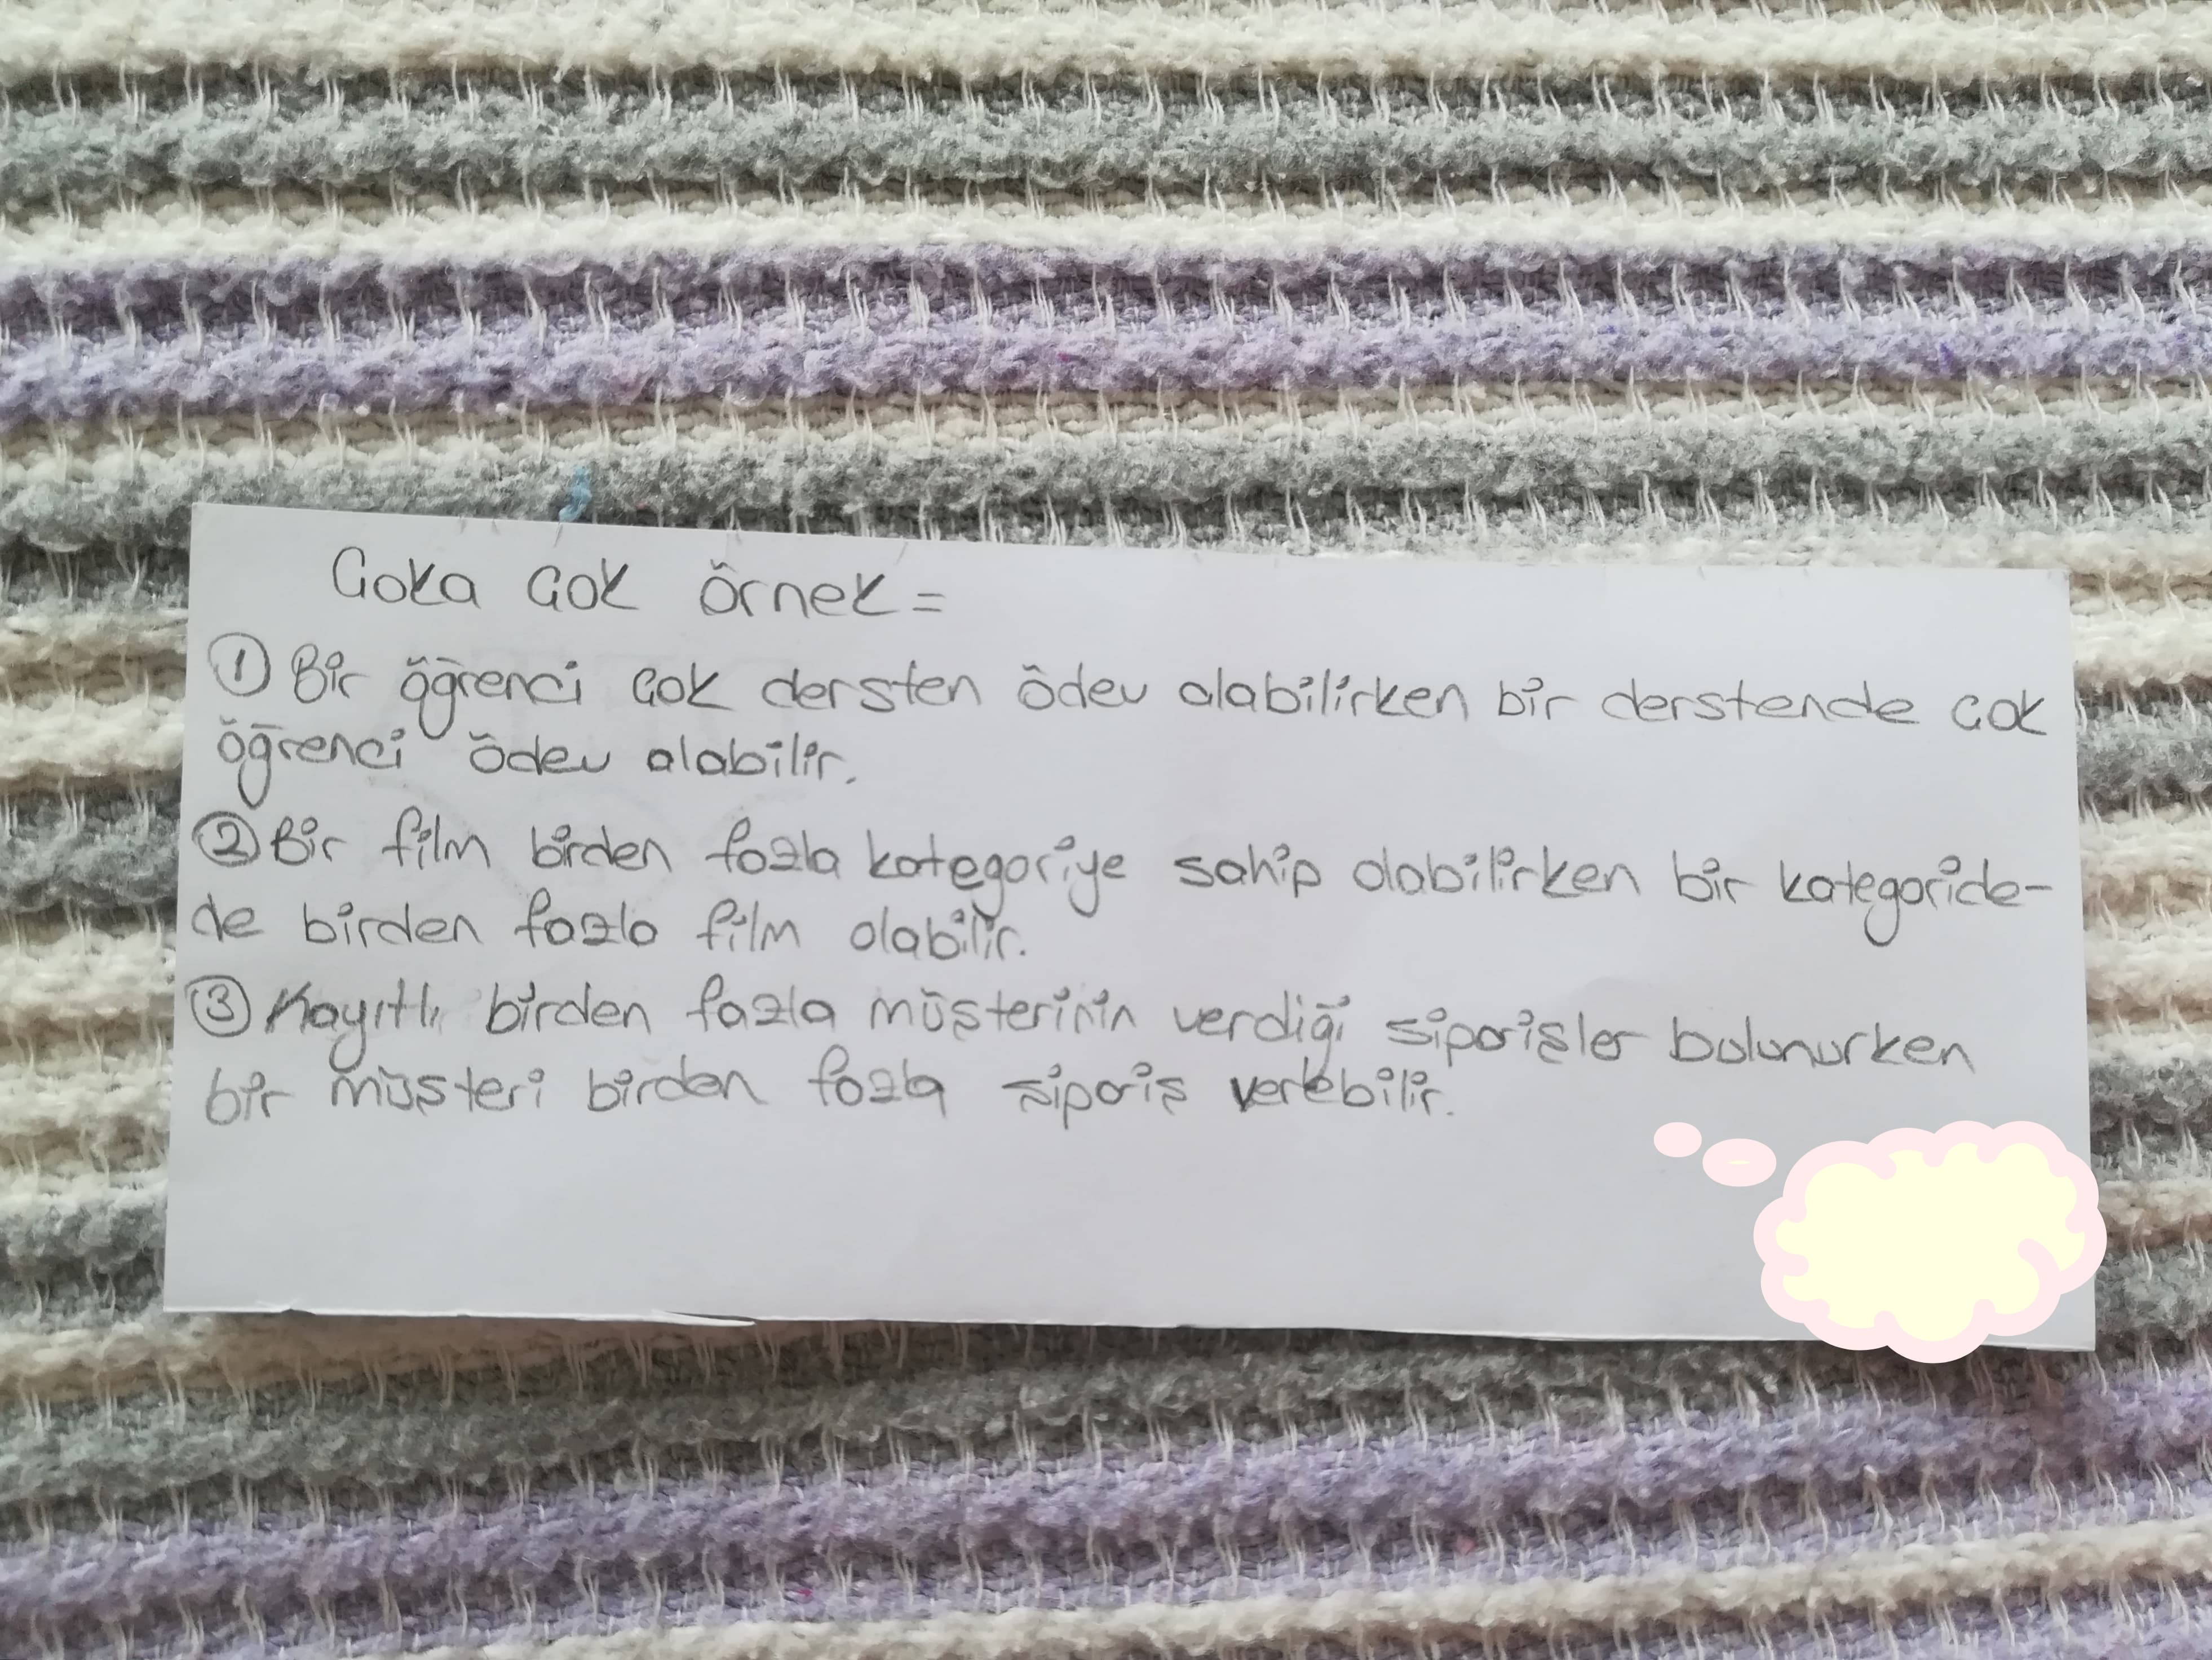 Çoka çok örnek=
① Bir öğrenci çok dersten ödev alabilirken bir derstende çok
öğrenci ödev alabilir.
② Bir film birden fazla kategoriye sahip olabilirken bir kategoride-
de birden fazla film olabilir.
③ Kayıtlı birden fazla müşterinin verdiği siparişler bulunurken
bir müşteri birden fazla sipariş verebilir.